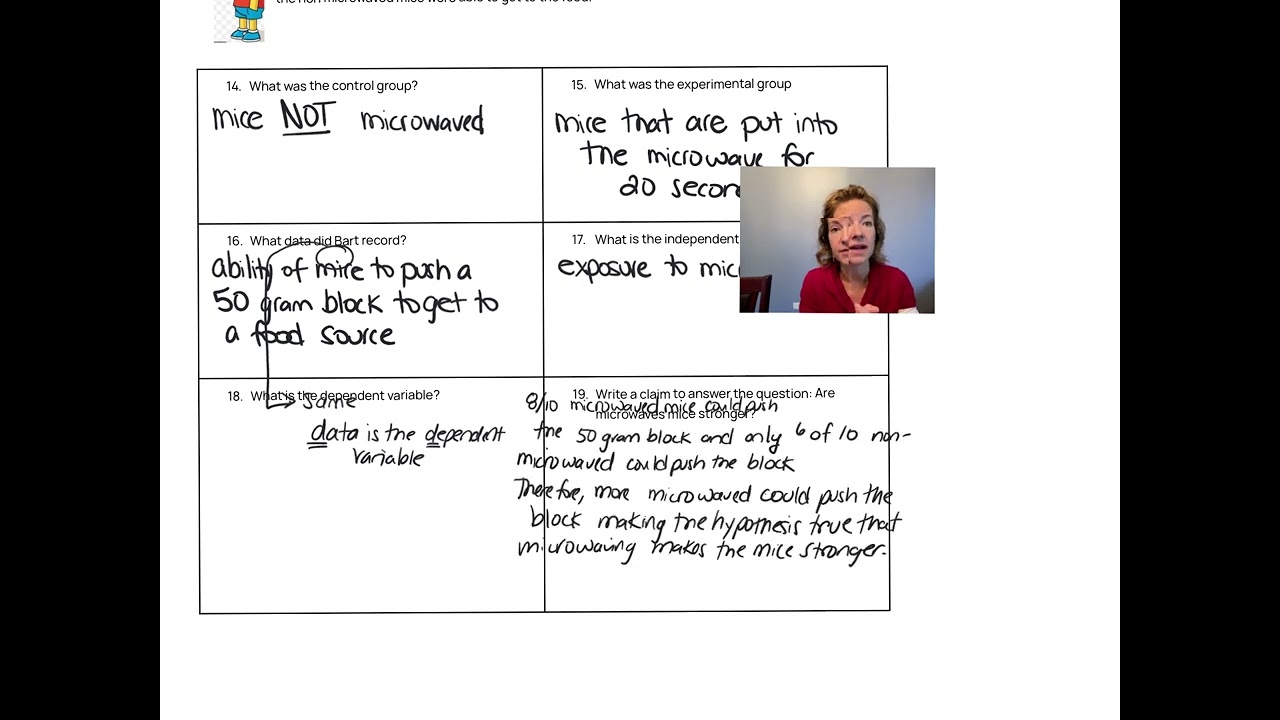 the non microwaved mice were able to get to the food.
14. What was the control group?
mice NOT microwaved
15. What was the experimental group
mice that are put into
the microwave for
20
16. What data did Bart record?
ability of mice to push a
50 gram block to get to
a food source
17. What is the independent
exposure to
18. What is the dependent variable?
same
data is the dependent
variable
19. Write a claim to answer the question: Are
microwaves mice stronger?
8/10 microwaved mice could push
the 50 gram block and only 6 of 10 non-
microwaved could push the block
Therefore, more microwaved could push the
block making the hypothesis true that
microwaving makes the mice stronger.